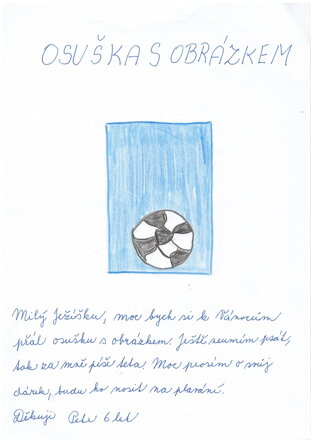 OSUŠKA S OBRÁZKEM
Milý Ježíšku, moc bych si k Vánocům
přál osušku s obrázkem. Ještě neumím psát,
tak za mně píše teta. Moc prosím o můj
dárek, budu ho nosit na plavání.
Děkuji Petr 6 let